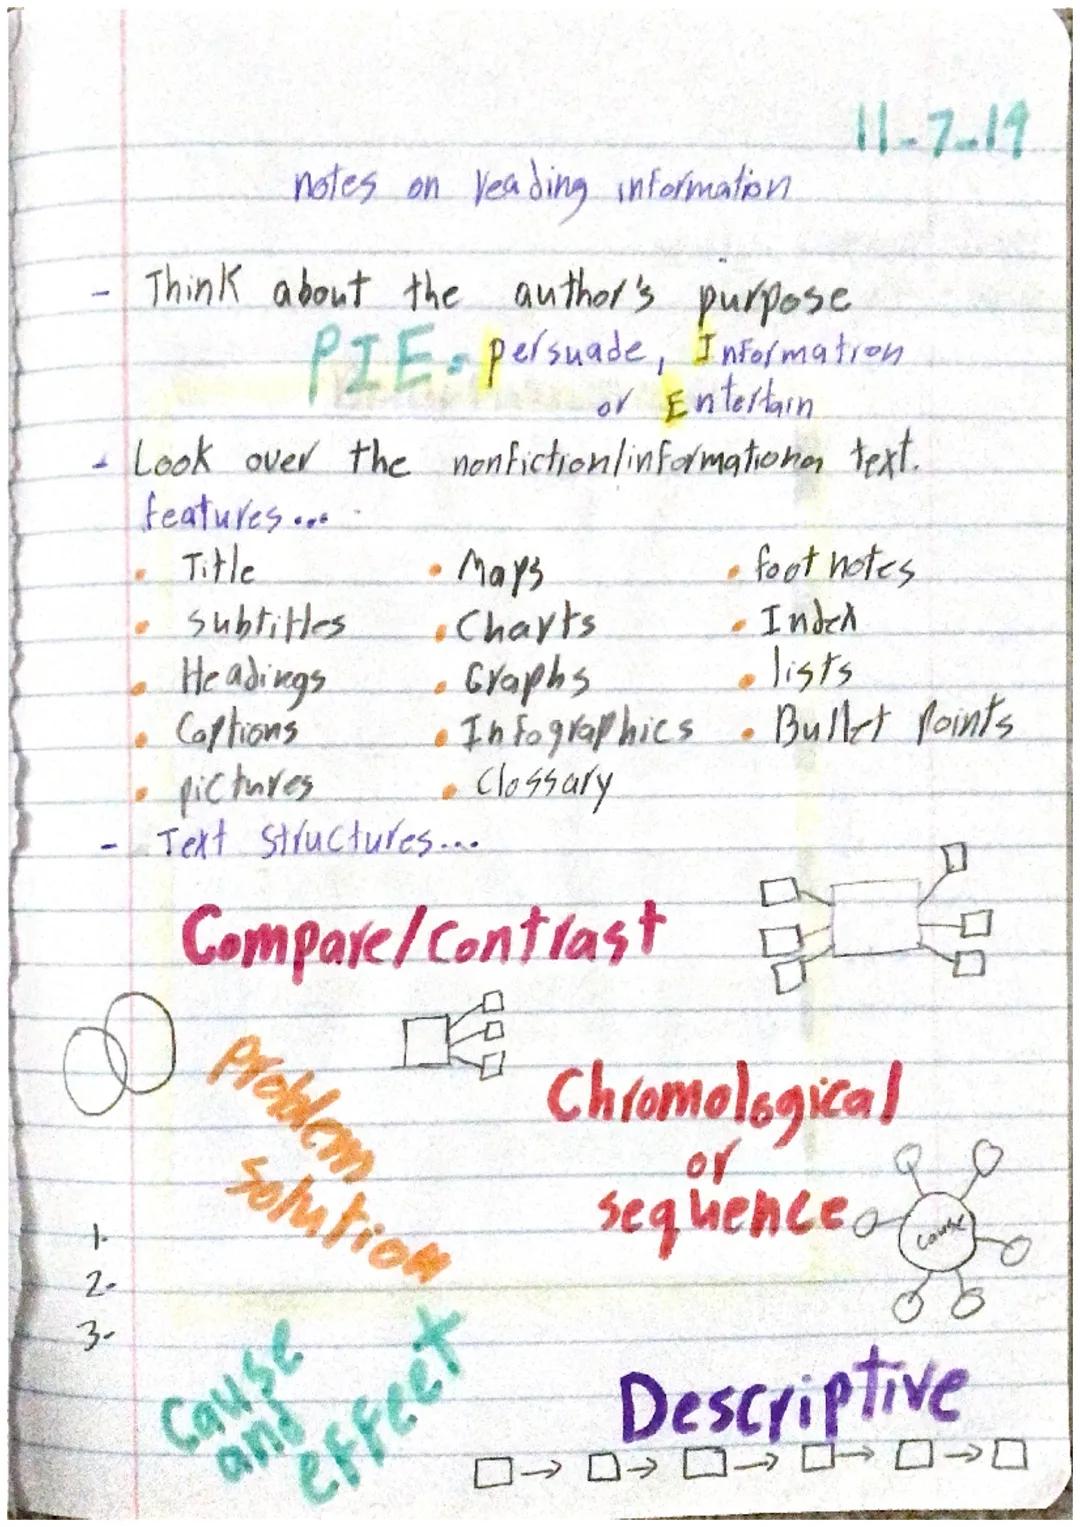 11-7-19
notes on reading information
- Think about the author's purpose
PIE- Persuade, Information
or Entertain
- Look over the nonfiction/informational text.
features...
• Title • Maps • foot notes
• subtitles • Charts • Index
• Headings • Graphs • lists
• Captions • Infographics • Bullet Points
• pictures • Glossary
- Text structures...
Compare/contrast
Problem
solution
Chromological
or
sequence
cause
1.
2.
3.
Cause
and
effect
Descriptive